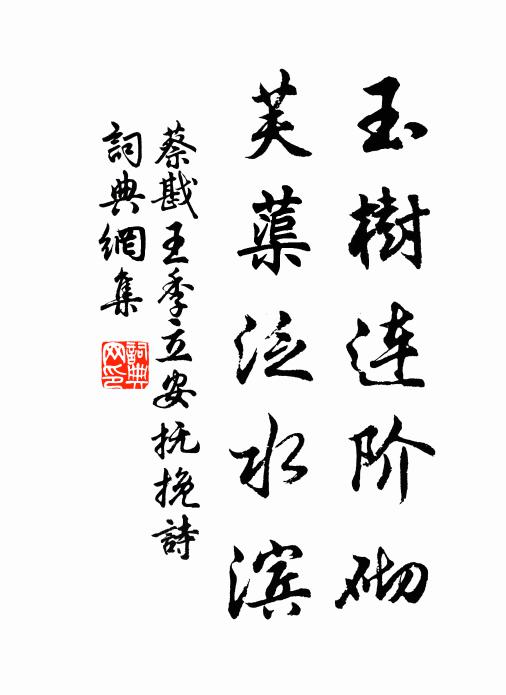 玉樹连阶砌
芙蕖泛水滨
蔡戡王季立安抚挽詩
詞典網集
詞典
网印